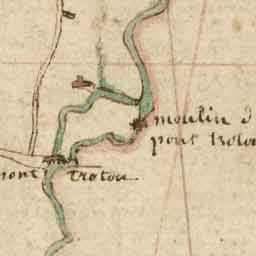 moulin d
pont trotou
pont trotou